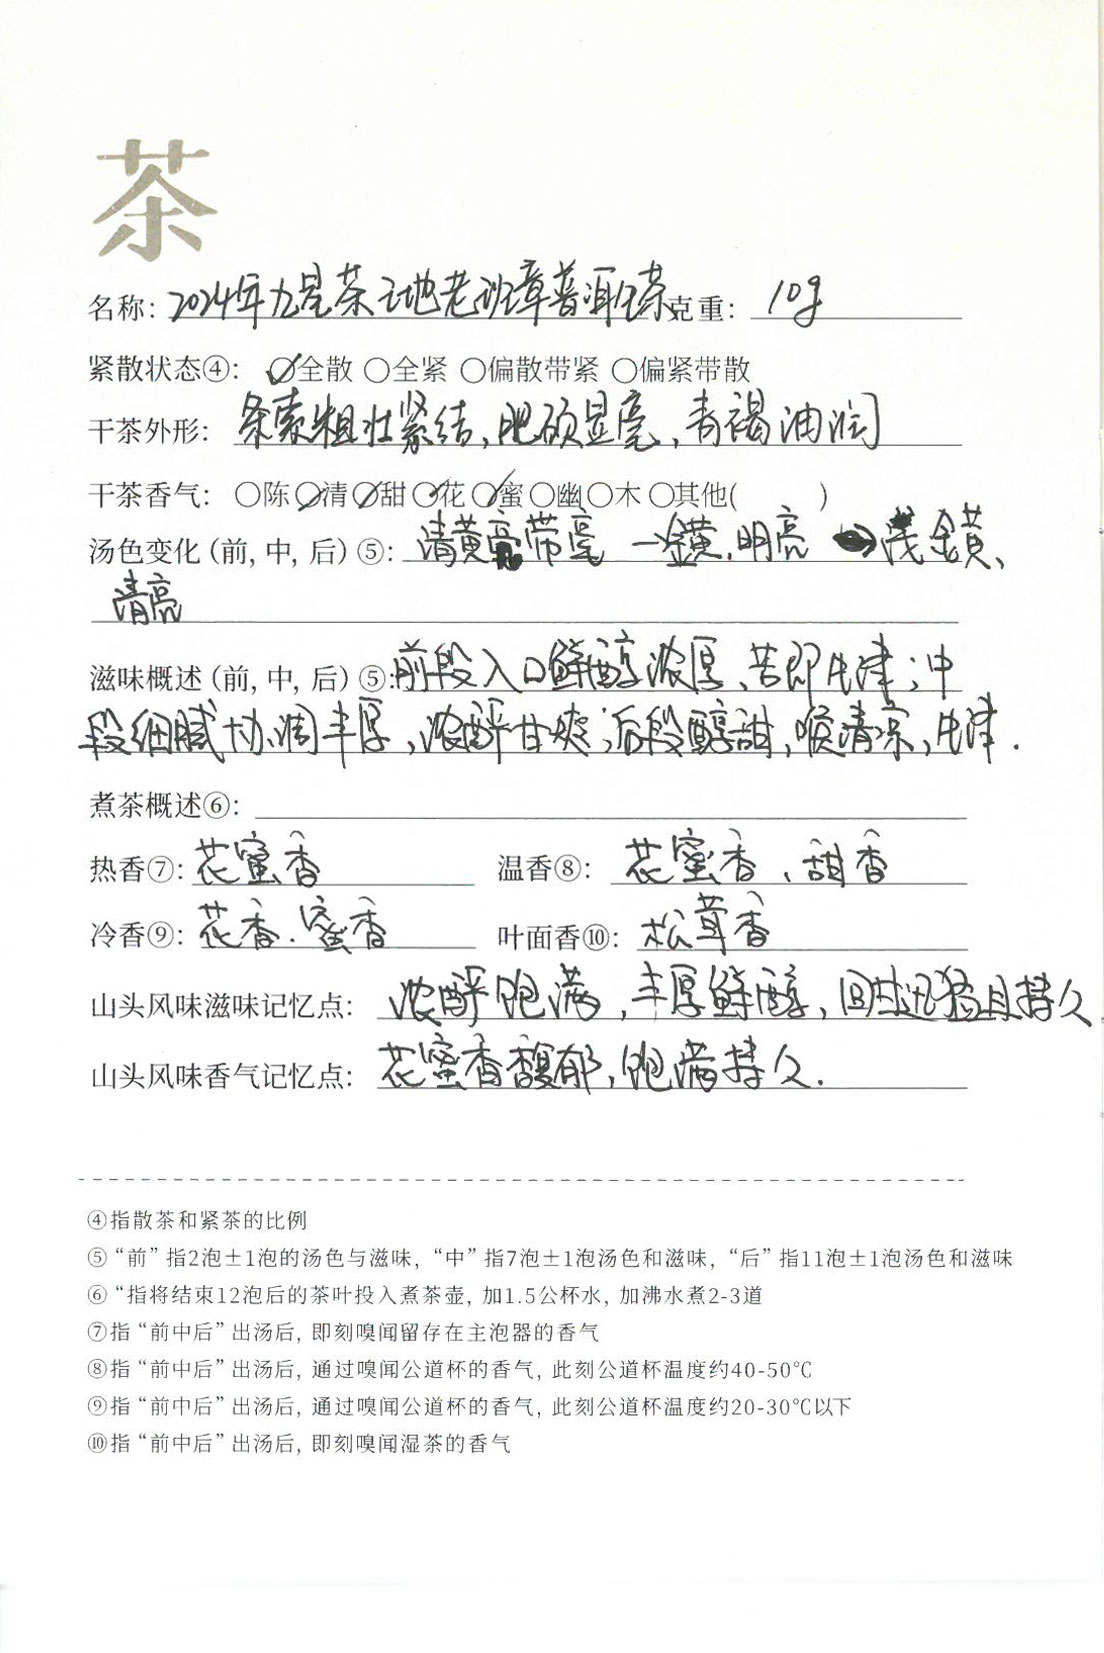 茶
名称: 2024年九昱茶云地老班章普洱生茶 克重: 10g
紧散状态④: 全散 全紧 偏散带紧 偏紧带散
干茶外形: 条索粗壮紧结,肥硕显毫,青褐油润
干茶香气: 陈 清 甜 花 蜜 幽 木 其他( )
汤色变化(前, 中, 后)⑤: 清黄 带毫 →金黄、明亮 → 浅金黄、
清亮
滋味概述(前, 中, 后)⑤: 前段入口鲜醇浓厚、苦即生津;中
段细腻协调丰厚,浓酽甘爽;后段醇甜,喉清凉,生津.
煮茶概述⑥:
热香⑦: 花蜜香 温香⑧: 花蜜香、甜香
冷香⑨: 花香.蜜香 叶面香⑩: 松茸香
山头风味滋味记忆点: 浓酽饱满,丰厚鲜醇,回甘迅猛且持久
山头风味香气记忆点: 花蜜香馥郁,饱满持久.
④指散茶和紧茶的比例
⑤“前”指2泡±1泡的汤色与滋味, “中”指7泡±1泡汤色和滋味, “后”指11泡±1泡汤色和滋味
⑥“指将结束12泡后的茶叶投入煮茶壶, 加1.5公杯水, 加沸水煮2-3道
⑦指“前中后”出汤后, 即刻嗅闻留存在主泡器的香气
⑧指“前中后”出汤后, 通过嗅闻公道杯的香气, 此刻公道杯温度约40-50℃
⑨指“前中后”出汤后, 通过嗅闻公道杯的香气, 此刻公道杯温度约20-30℃以下
⑩指“前中后”出汤后, 即刻嗅闻湿茶的香气